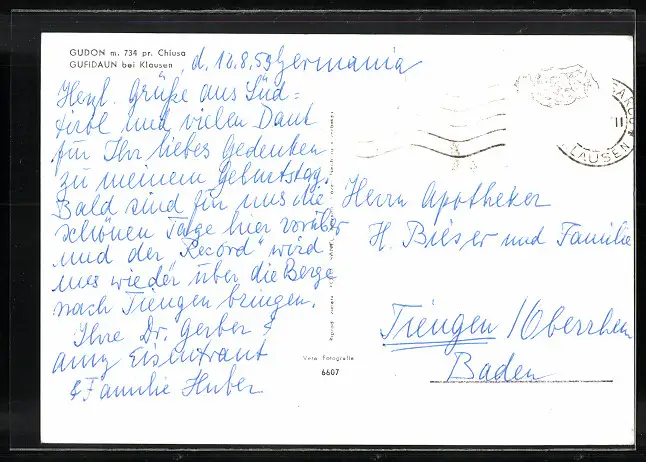 GUDON m. 734 pr. Chiusa
GUFIDAUN bei Klausen, d. 12.8.59 Germania
Herzl. Grüße aus Süd=
tirol und vielen Dank
für Ihr liebes Gedenken
zu meinem Geburtstag.
Bald sind für uns die
schönen Tage hier vorüber
und der „Record" wird
uns wieder über die Berge
nach Tiengen bringen.
Ihre Dr. Gerber &
Eisentraut
& Familie Huber
Vera Fotografie
6607
LAUSEN
11
Herrn Apotheker
H. Bieser und Familie
Tiengen / Oberrhein
Baden